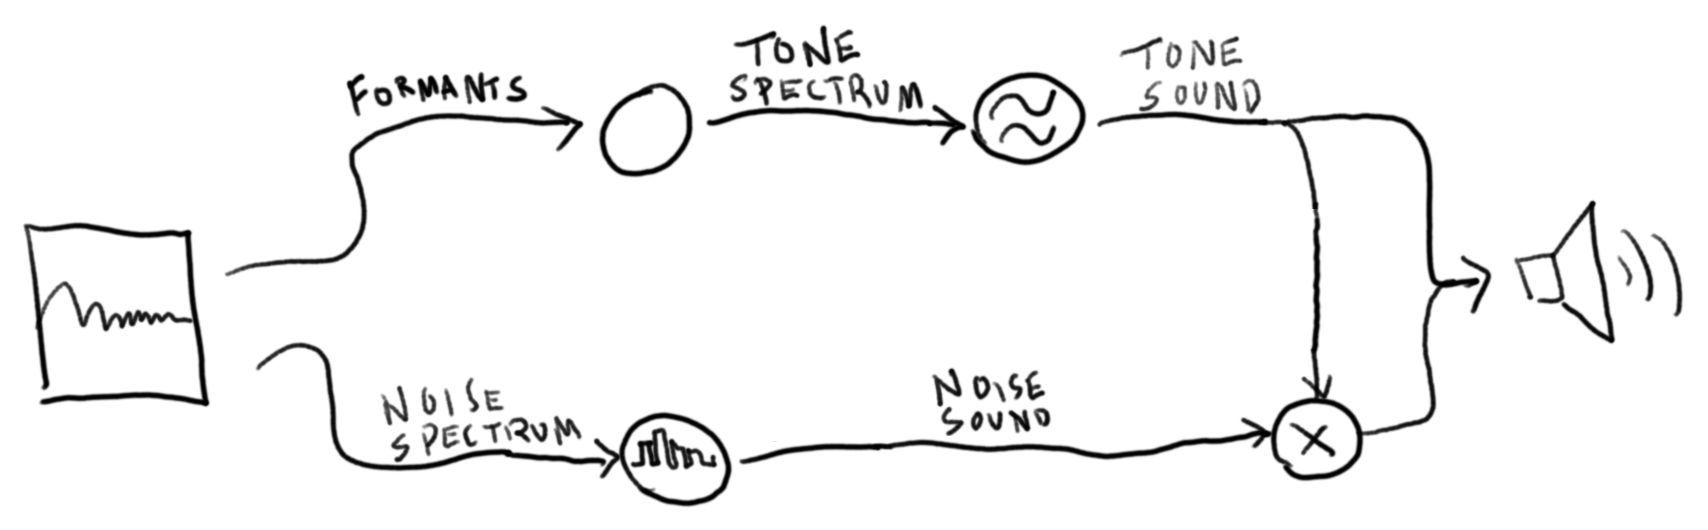 FORMANTS
TONE
SPECTRUM
TONE
SOUND
NOISE
SPECTRUM
NOISE
SOUND